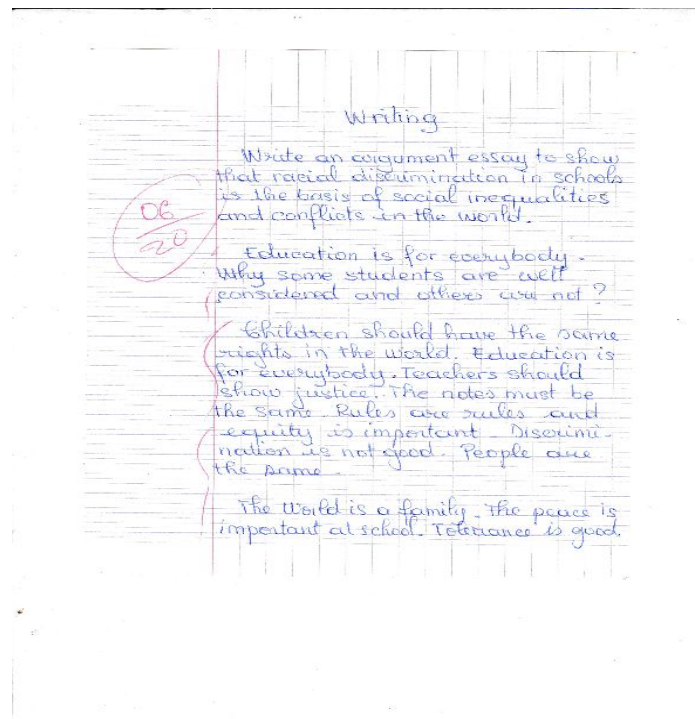 Writing
Write an argument essay to show
that racial discrimination in schools
is the basis of social inequalities
and conflicts in the world.
06
20
Education is for everybody.
Why some students are well
considered and others are not?
Children should have the same
rights in the world. Education is
for everybody. Teachers should
show justice. The notes must be
the same. Rules are rules and
equity is important. Discrimi-
nation is not good. People are
the same.
The World is a family. The peace is
important at school. Tolerance is good.